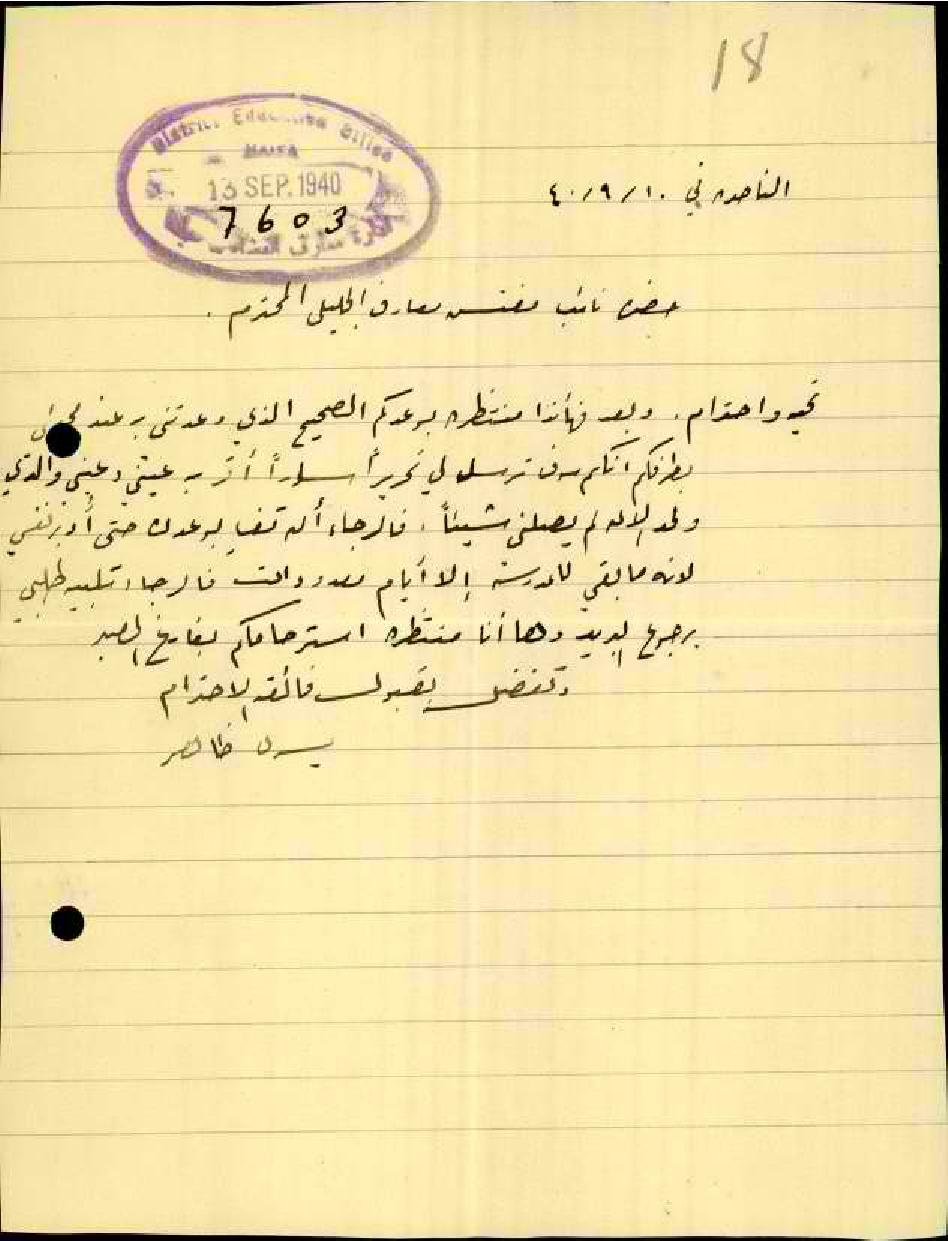 18
District Education Office
HAIFA
13 SEP. 1940
7603
الناصره في ١٠/٩/٤٠
حضرة نائب مفتش معارف الجليل المحترم .
تحيه واحترام . وبعد فهأنذا منتظره بوعدكم الصحيح الذي وعدتني به عند
بطرفكم انكم سوف ترسل لي تحريراً ساراً أقر به عيني وعيني والدي
ولحد الان لم يصلني شيئاً . فالرجاء أن تفي بوعدك حتى أدبر نفسي
لانه ما بقي للمدرسة إلا أيام معدودات فالرجاء تلبيه طلبي
برجوع البريد وها أنا منتظره استرحامكم بفارغ الصبر
وتفضل بقبول فائق الاحترام
يسرى ظاهر